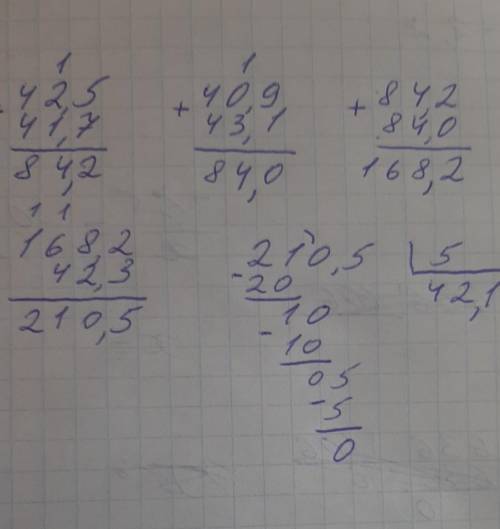 1
42,5
41,7
84,2
1
+ 40,9
43,1
84,0
+ 84,2
84,0
168,2
1 1
168,2
42,3
210,5
210,5 | 5
- 20 42,1
10
- 10
05
- 5
0